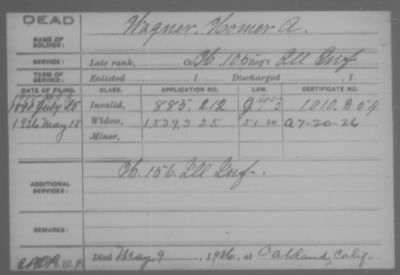 DEAD
NAME OF SOLDIER:
Wagner, Homer A.
SERVICE:
Late rank, Co. H, 105 Reg't Ill Inf
TERM OF SERVICE:
Enlisted , 1 Discharged , 1
DATE OF FILING. CLASS. APPLICATION NO. LAW. CERTIFICATE NO.
1890 July 25 Invalid, 885.212 1010.854
1926 May 18 Widow, 1539325 5-1-20 A7-20-26
Minor,
ADDITIONAL SERVICES:
H 156 Ill Inf.
REMARKS:
Died May 9, 1926, at Oakland, Calif.